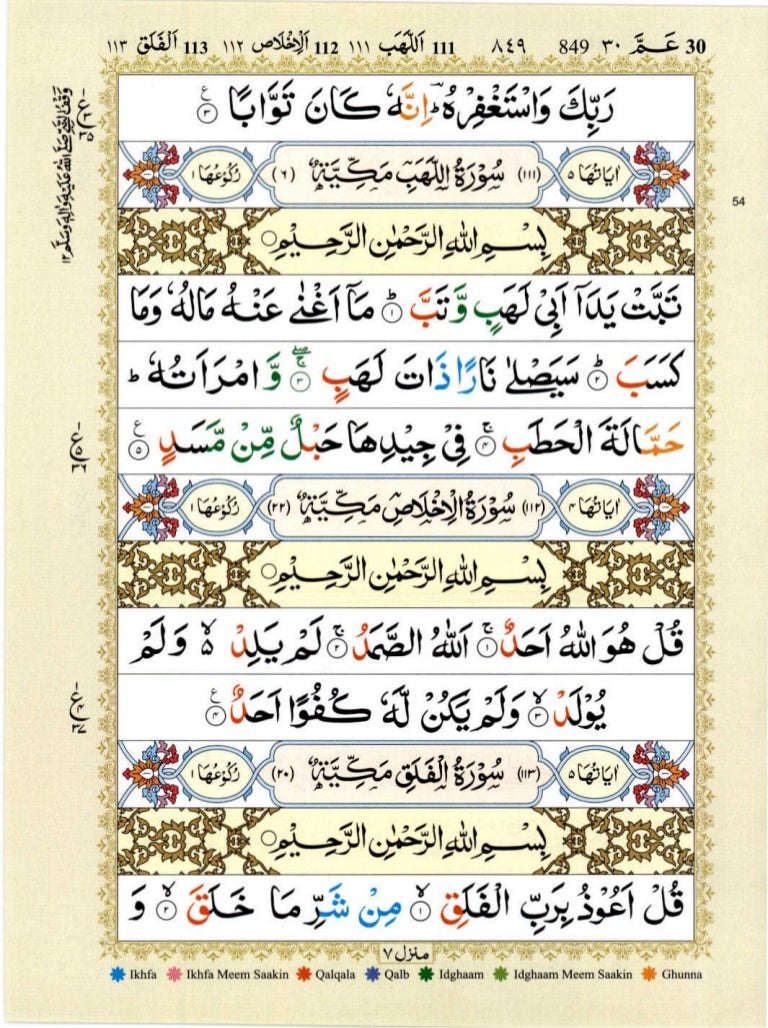 30 عَـمَّ ٣٠ 849 ٨٤٩ 111 اَللَّهَب ١١١ 112 اَلْاِخْلَاص ١١٢ 113 اَلْفَلَق ١١٣
رَبِّكَ وَاسْتَغْفِرْهُ ؕ اِنَّهٗ كَانَ تَوَّابًا ﴿٣﴾ ع
اٰيَاتُهَا ٥ (١١١) سُوْرَةُ اللَّهَبِ مَكِّيَّةٌ (٦) رُكُوْعُهَا ١
بِسْمِ اللّٰهِ الرَّحْمٰنِ الرَّحِيْمِ
تَبَّتْ يَدَاۤ اَبِيْ لَهَبٍ وَّ تَبَّ ؕ﴿١﴾ مَاۤ اَغْنٰى عَنْهُ مَالُهٗ وَمَا
كَسَبَ ؕ﴿٢﴾ سَيَصْلٰى نَارًا ذَاتَ لَهَبٍ ۚۖ﴿٣﴾ وَّ امْرَاَتُهٗ ؕ
حَمَّالَةَ الْحَطَبِ ۚ﴿٤﴾ فِيْ جِيْدِهَا حَبْلٌ مِّنْ مَّسَدٍ ﴿٥﴾ ع
اٰيَاتُهَا ٤ (١١٢) سُوْرَةُ الْاِخْلَاصِ مَكِّيَّةٌ (٢٢) رُكُوْعُهَا ١
بِسْمِ اللّٰهِ الرَّحْمٰنِ الرَّحِيْمِ
قُلْ هُوَ اللّٰهُ اَحَدٌ ۚ﴿١﴾ اَللّٰهُ الصَّمَدُ ۚ﴿٢﴾ لَمْ يَلِدْ ۙ۬ وَلَمْ
يُوْلَدْ ۙ﴿٣﴾ وَلَمْ يَكُنْ لَّهٗ كُفُوًا اَحَدٌ ﴿٤﴾ ع
اٰيَاتُهَا ٥ (١١٣) سُوْرَةُ الْفَلَقِ مَكِّيَّةٌ (٢٠) رُكُوْعُهَا ١
بِسْمِ اللّٰهِ الرَّحْمٰنِ الرَّحِيْمِ
قُلْ اَعُوْذُ بِرَبِّ الْفَلَقِ ۙ﴿١﴾ مِنْ شَرِّ مَا خَلَقَ ۙ﴿٢﴾ وَ
منزل ٧
Ikhfa Ikhfa Meem Saakin Qalqala Qalb Idghaam Idghaam Meem Saakin Ghunna
54